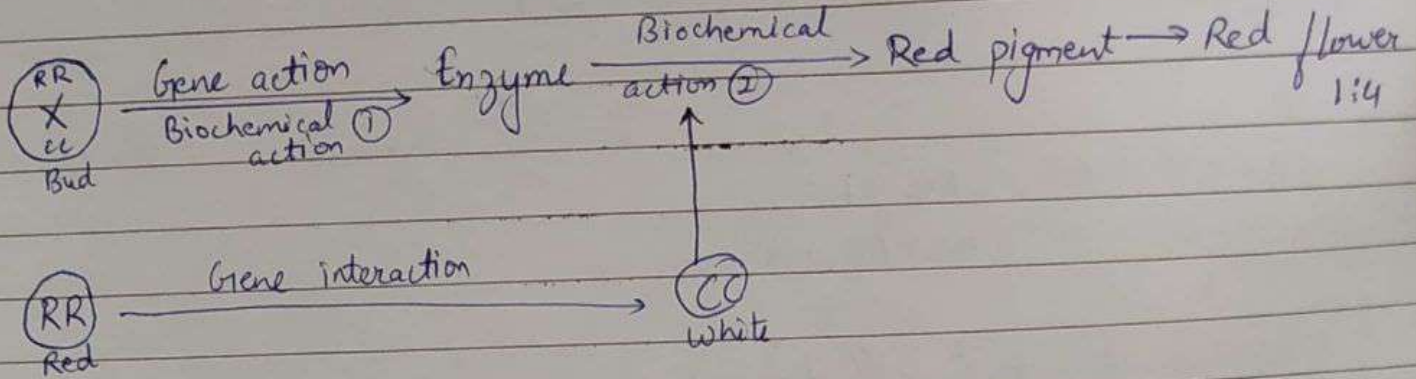 RR
X
cc
Bud
Gene action
Biochemical ①
action
Enzyme
Biochemical
action ②
Red pigment → Red flower
1:4
RR
Red
Gene interaction
CC
White